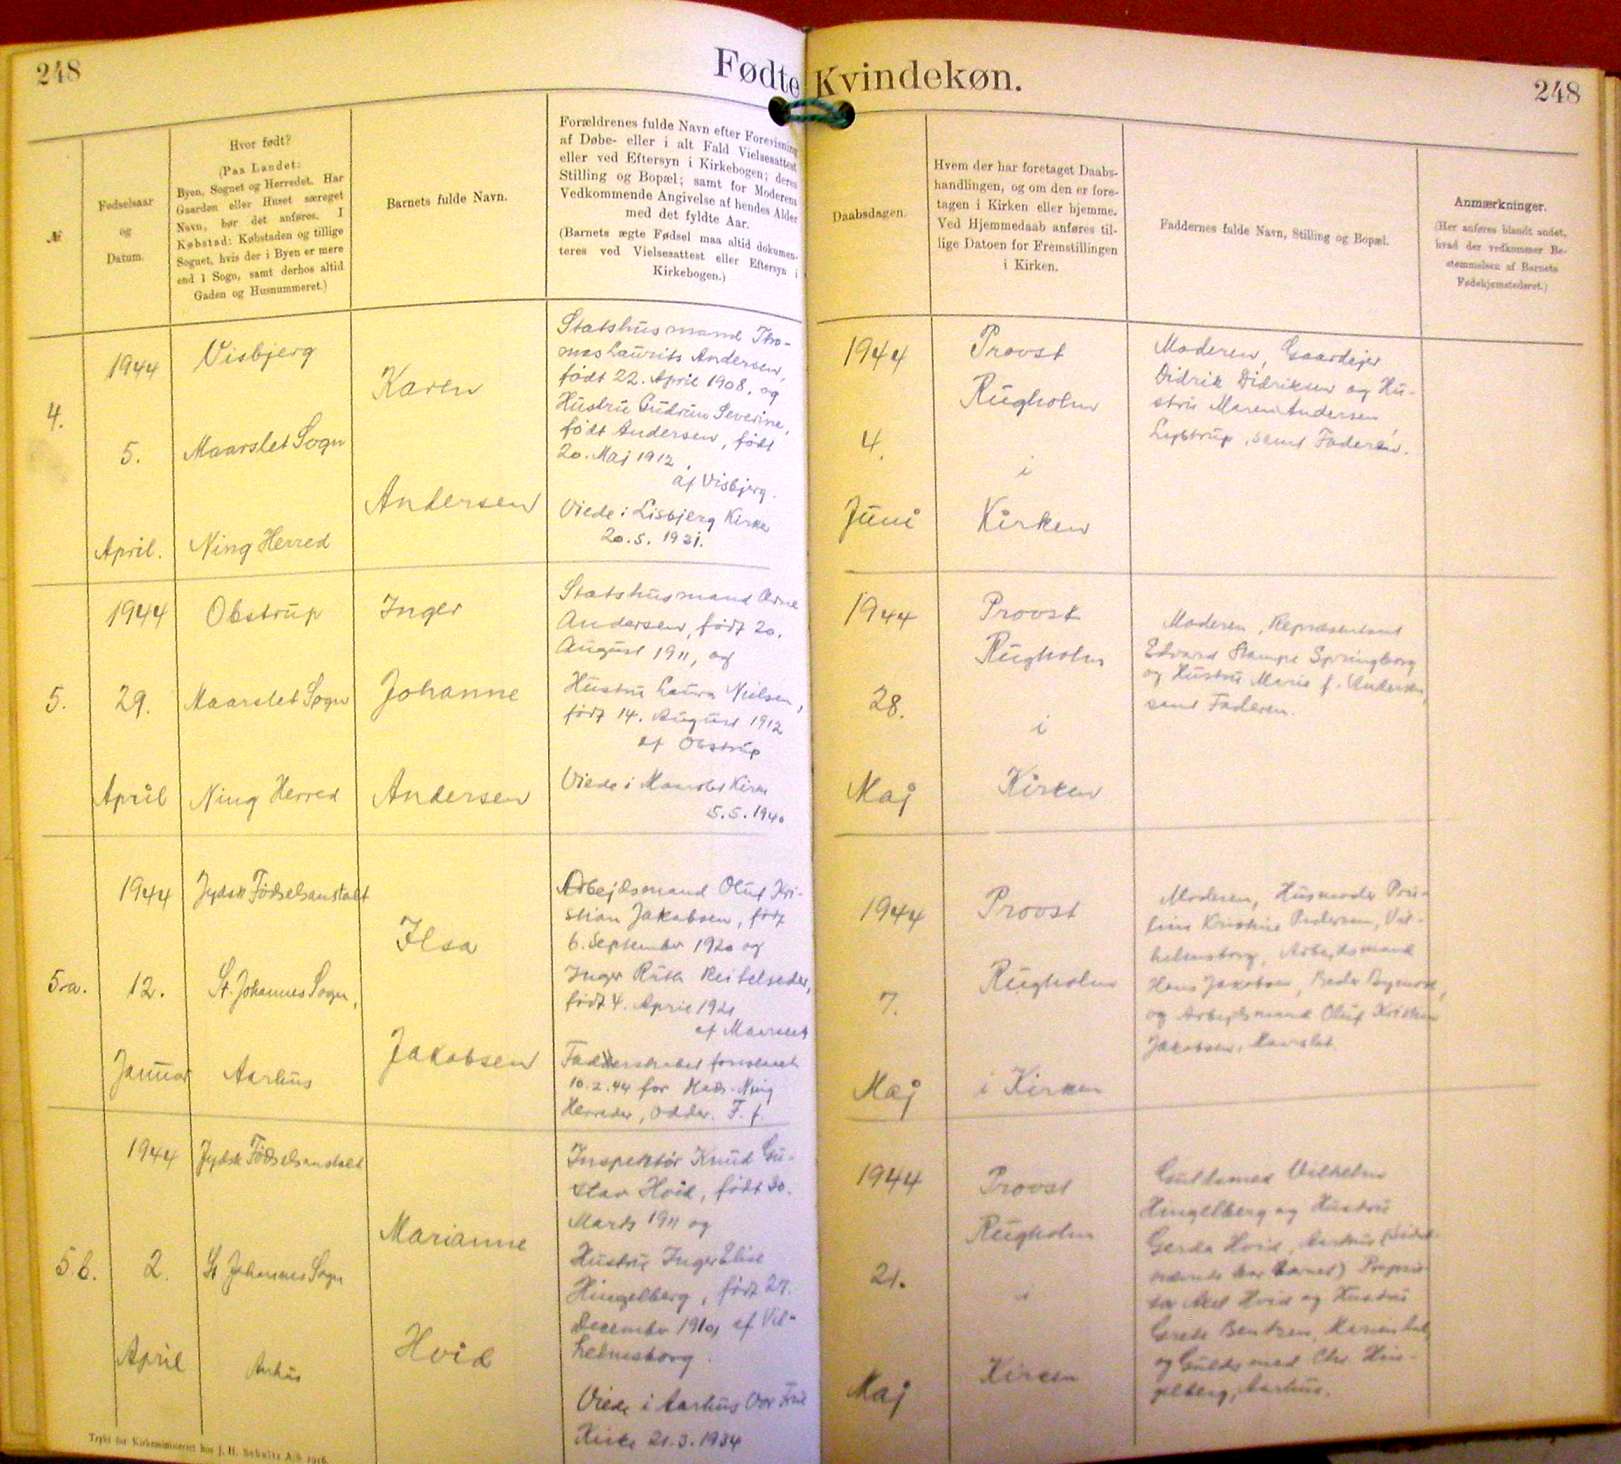 248
Fødte Kvindekøn.
248
№
Fødselsaar
og
Datum.
Hvor født?
(Paa Landet:
Byen, Sognet og Herredet. Har
Gaarden eller Huset særeget
Navn, bør det anføres. I
Købstad: Købstaden og tillige
Sognet, hvis der i Byen er mere
end 1 Sogn, samt derhos altid
Gaden og Husnummeret.)
Barnets fulde Navn.
Forældrenes fulde Navn efter Forevisning
af Døbe- eller i alt Fald Vielsesattest
eller ved Eftersyn i Kirkebogen; deres
Stilling og Bopæl; samt for Moderens
Vedkommende Angivelse af hendes Alder
med det fyldte Aar.
(Barnets ægte Fødsel maa altid dokumen-
teres ved Vielsesattest eller Eftersyn i
Kirkebogen.)
Daabsdagen.
Hvem der har foretaget Daabs-
handlingen, og om den er fore-
tagen i Kirken eller hjemme.
Ved Hjemmedaab anføres til-
lige Datoen for Fremstillingen
i Kirken.
Faddernes fulde Navn, Stilling og Bopæl.
Anmærkninger.
(Her anføres blandt andet,
hvad der vedkommer Be-
stemmelsen af Barnets
Fødehjemstedsret.)
4.
1944
5.
April.
Visbjerg
Maarslet Sogn
Ning Herred
Karen
Andersen
Statshusmand Tho-
mas Laurits Andersen,
født 22. April 1908, og
Hustru Gudrun Severine,
født Andersen, født
20. Maj 1912,
af Visbjerg.
Viede i Lisbjerg Kirke
20.5.1931.
1944
4.
Juni
Provst
Rugholm
i
Kirken
Moderen, Gaardejer
Didrik Didriksen og Hu-
stru Maren Andersen
samt Faderen.
5.
1944
29.
April
Obstrup
Maarslet Sogn
Ning Herred
Inger
Johanne
Andersen
Statshusmand Arne
Andersen, født 20.
August 1911, og
Hustru Laura Nielsen,
født 14. August 1912
af Obstrup
Viede i Maarslet Kirke
5.5.1940
1944
28.
Maj
Provst
Rugholm
i
Kirken
Moderen, Repræsentant
Edvard Stampe Springborg
og Hustru Marie f. Andersen,
samt Faderen.
5a.
1944
12.
Januar
Jydsk Fødselsanstalt
St. Johannes Sogn,
Aarhus
Ilsa
Jakobsen
Arbejdsmand Oluf Kri-
stian Jakobsen, født
6. September 1920 og
Inger Ruth
født 4. April 1921
af Maarslet
10.2.44 for Hads-Ning
Herreder, Odder. F. f.
1944
7.
Maj
Provst
Rugholm
i Kirken
Moderen, Husmoder
Kristine Pedersen, Vil-
helmsborg, Arbejdsmand
Hans Jakobsen, Beder
og Arbejdsmand Oluf Kristian
Jakobsen, Maarslet.
5.b.
1944
2.
April
Jydsk Fødselsanstalt
St Johannes Sogn
Arhus
Marianne
Hvid
Inspektør Knud Gu-
stav Hvid, født 30.
Marts 1911 og
Hustru Inger Elise
Hingelberg, født 27.
December 1910, af Vil-
helmsborg.
Viede i Aarhus Vor Frue
Kirke 21.3.1934
1944
21.
Maj
Provst
Rugholm
i
Kirken
Guldsmed Vilhelm
Hingelberg og Hustru
Gerda Hvid, Aarhus (sidst-
nævnte bar Barnet) Proprie-
tær Hvid og Hustru
Grete Bentzen,
og Guldsmed Chr. Hin-
gelberg, Aarhus.
Trykt for Kirkeministeriet hos J. H. Schultz A/S 1916.